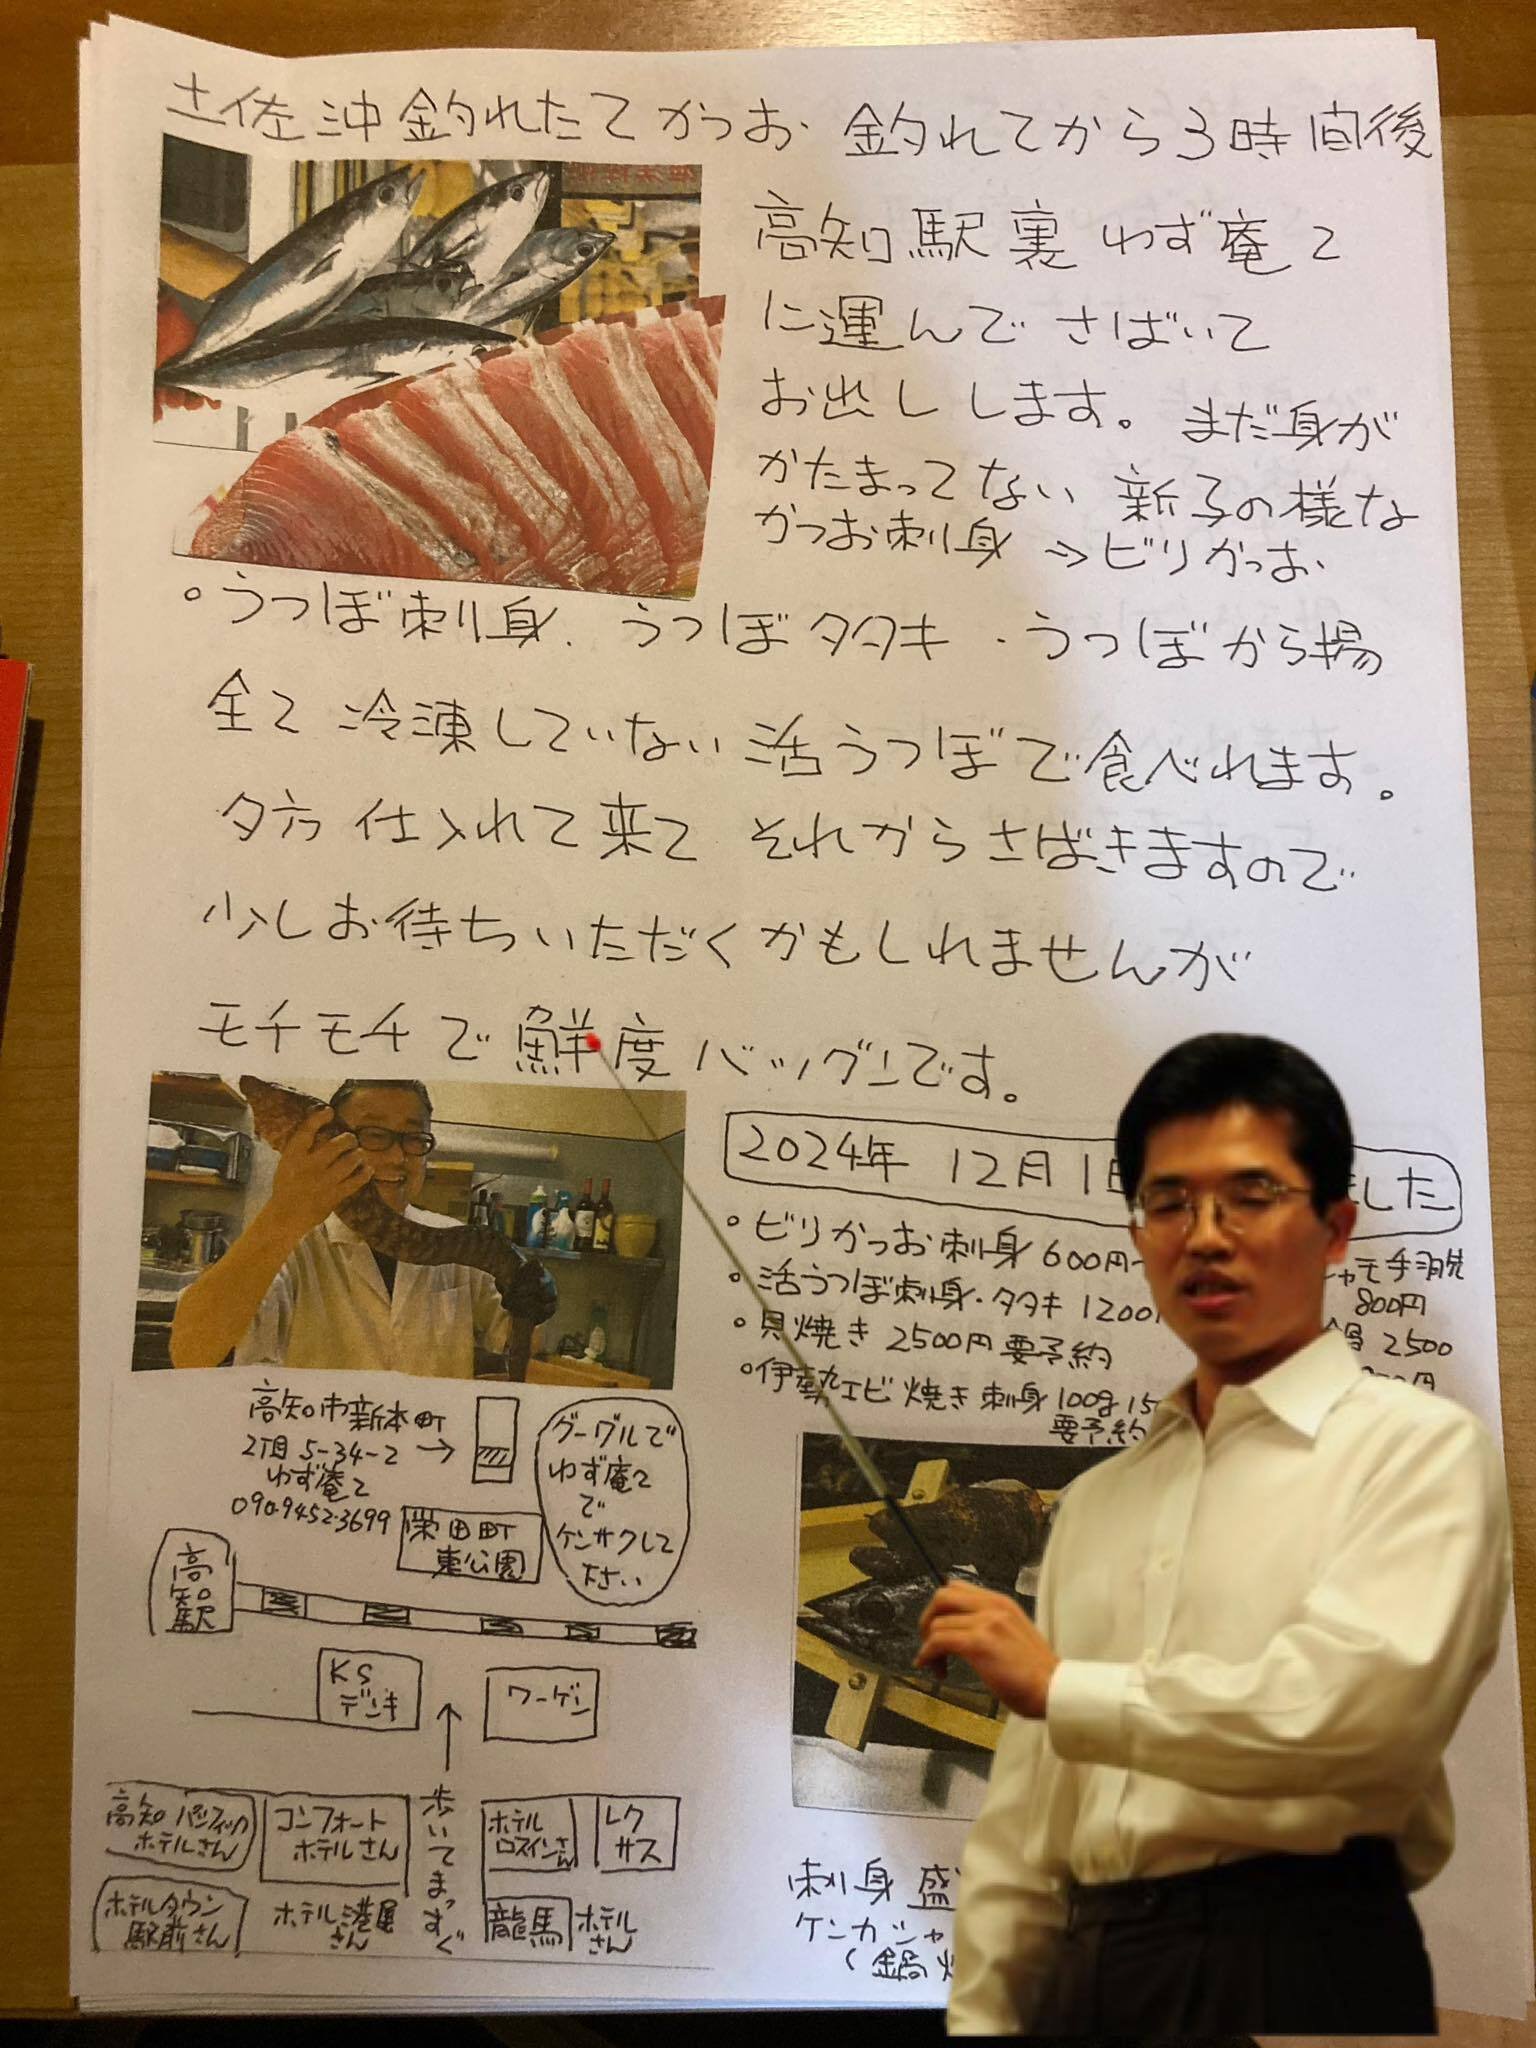 土佐沖釣れたてかつお 釣れてから3時間後
高知駅裏 わず庵て
に運んで さばいて
お出しします。まだ身が
かたまってない 新子の様な
かつお刺身 → ビリかつお
・うつぼ刺身・うつぼタタキ・うつぼから揚
全て 冷凍していない 活うつぼで食べれます。
夕方 仕入れて来て それからさばきますので
少しお待ちいただくかもしれませんが
モチモチで鮮度バッグンです。
2024年 12月1日 ました
・ビリかつお刺身 600円
・活うつぼ刺身・タタキ 1200
・貝焼き 2500円 要予約
・伊勢エビ 焼き 刺身 100g 15
要予約
ャモ手羽先
800円
鍋 2500
円
高知市新本町
2丁目 5-34-2 →
わず庵て
090-9452-3699
グーグルで
わず庵て
で
ケンサクして
下さい
栄田町
東公園
高知駅
KS
デンキ
ワーゲン
歩いてまっすぐ
高知パシフィック
ホテルさん
コンフォート
ホテルさん
ホテル
ロスインさん
レクサス
ホテルタウン
駅前さん
ホテル港屋
さん
龍馬
ホテル
さん
刺身 盛
ケンガシャ
(鍋